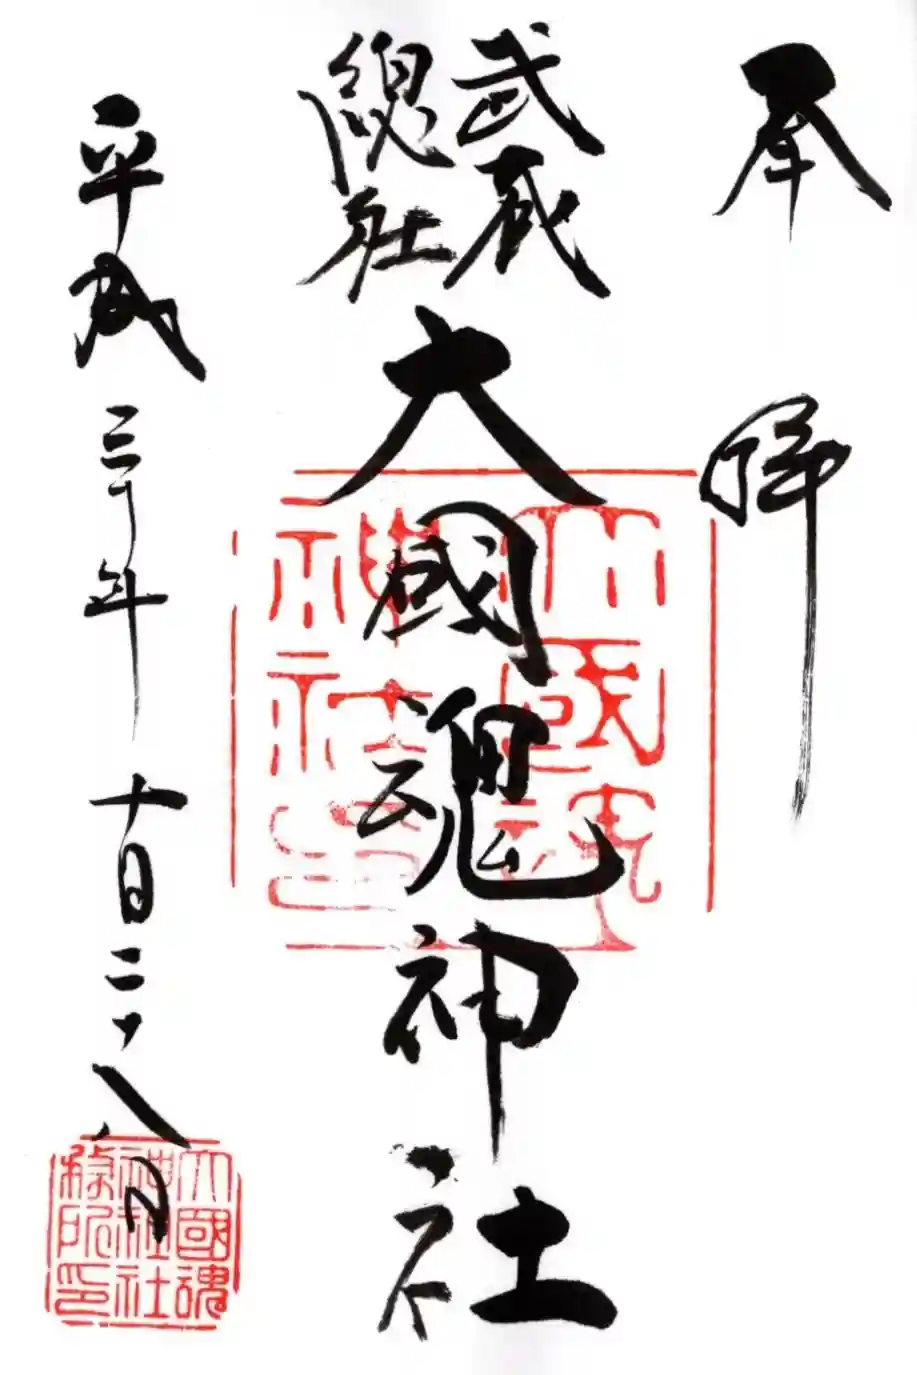 奉拝
武蔵
總社
大國魂神社
平成三十年十月二十八日
大國魂
神社印
大國魂
神社社
務所印